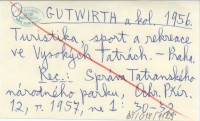 GUTWIRTH a kol. 1956.
Turistika, sport a rekreace
ve Vysokých Tatrách. – Praha.
Rec.: Správa Tatranského
národného parku, Ochr. Přír.
12, r. 1957, na 1: 30-32